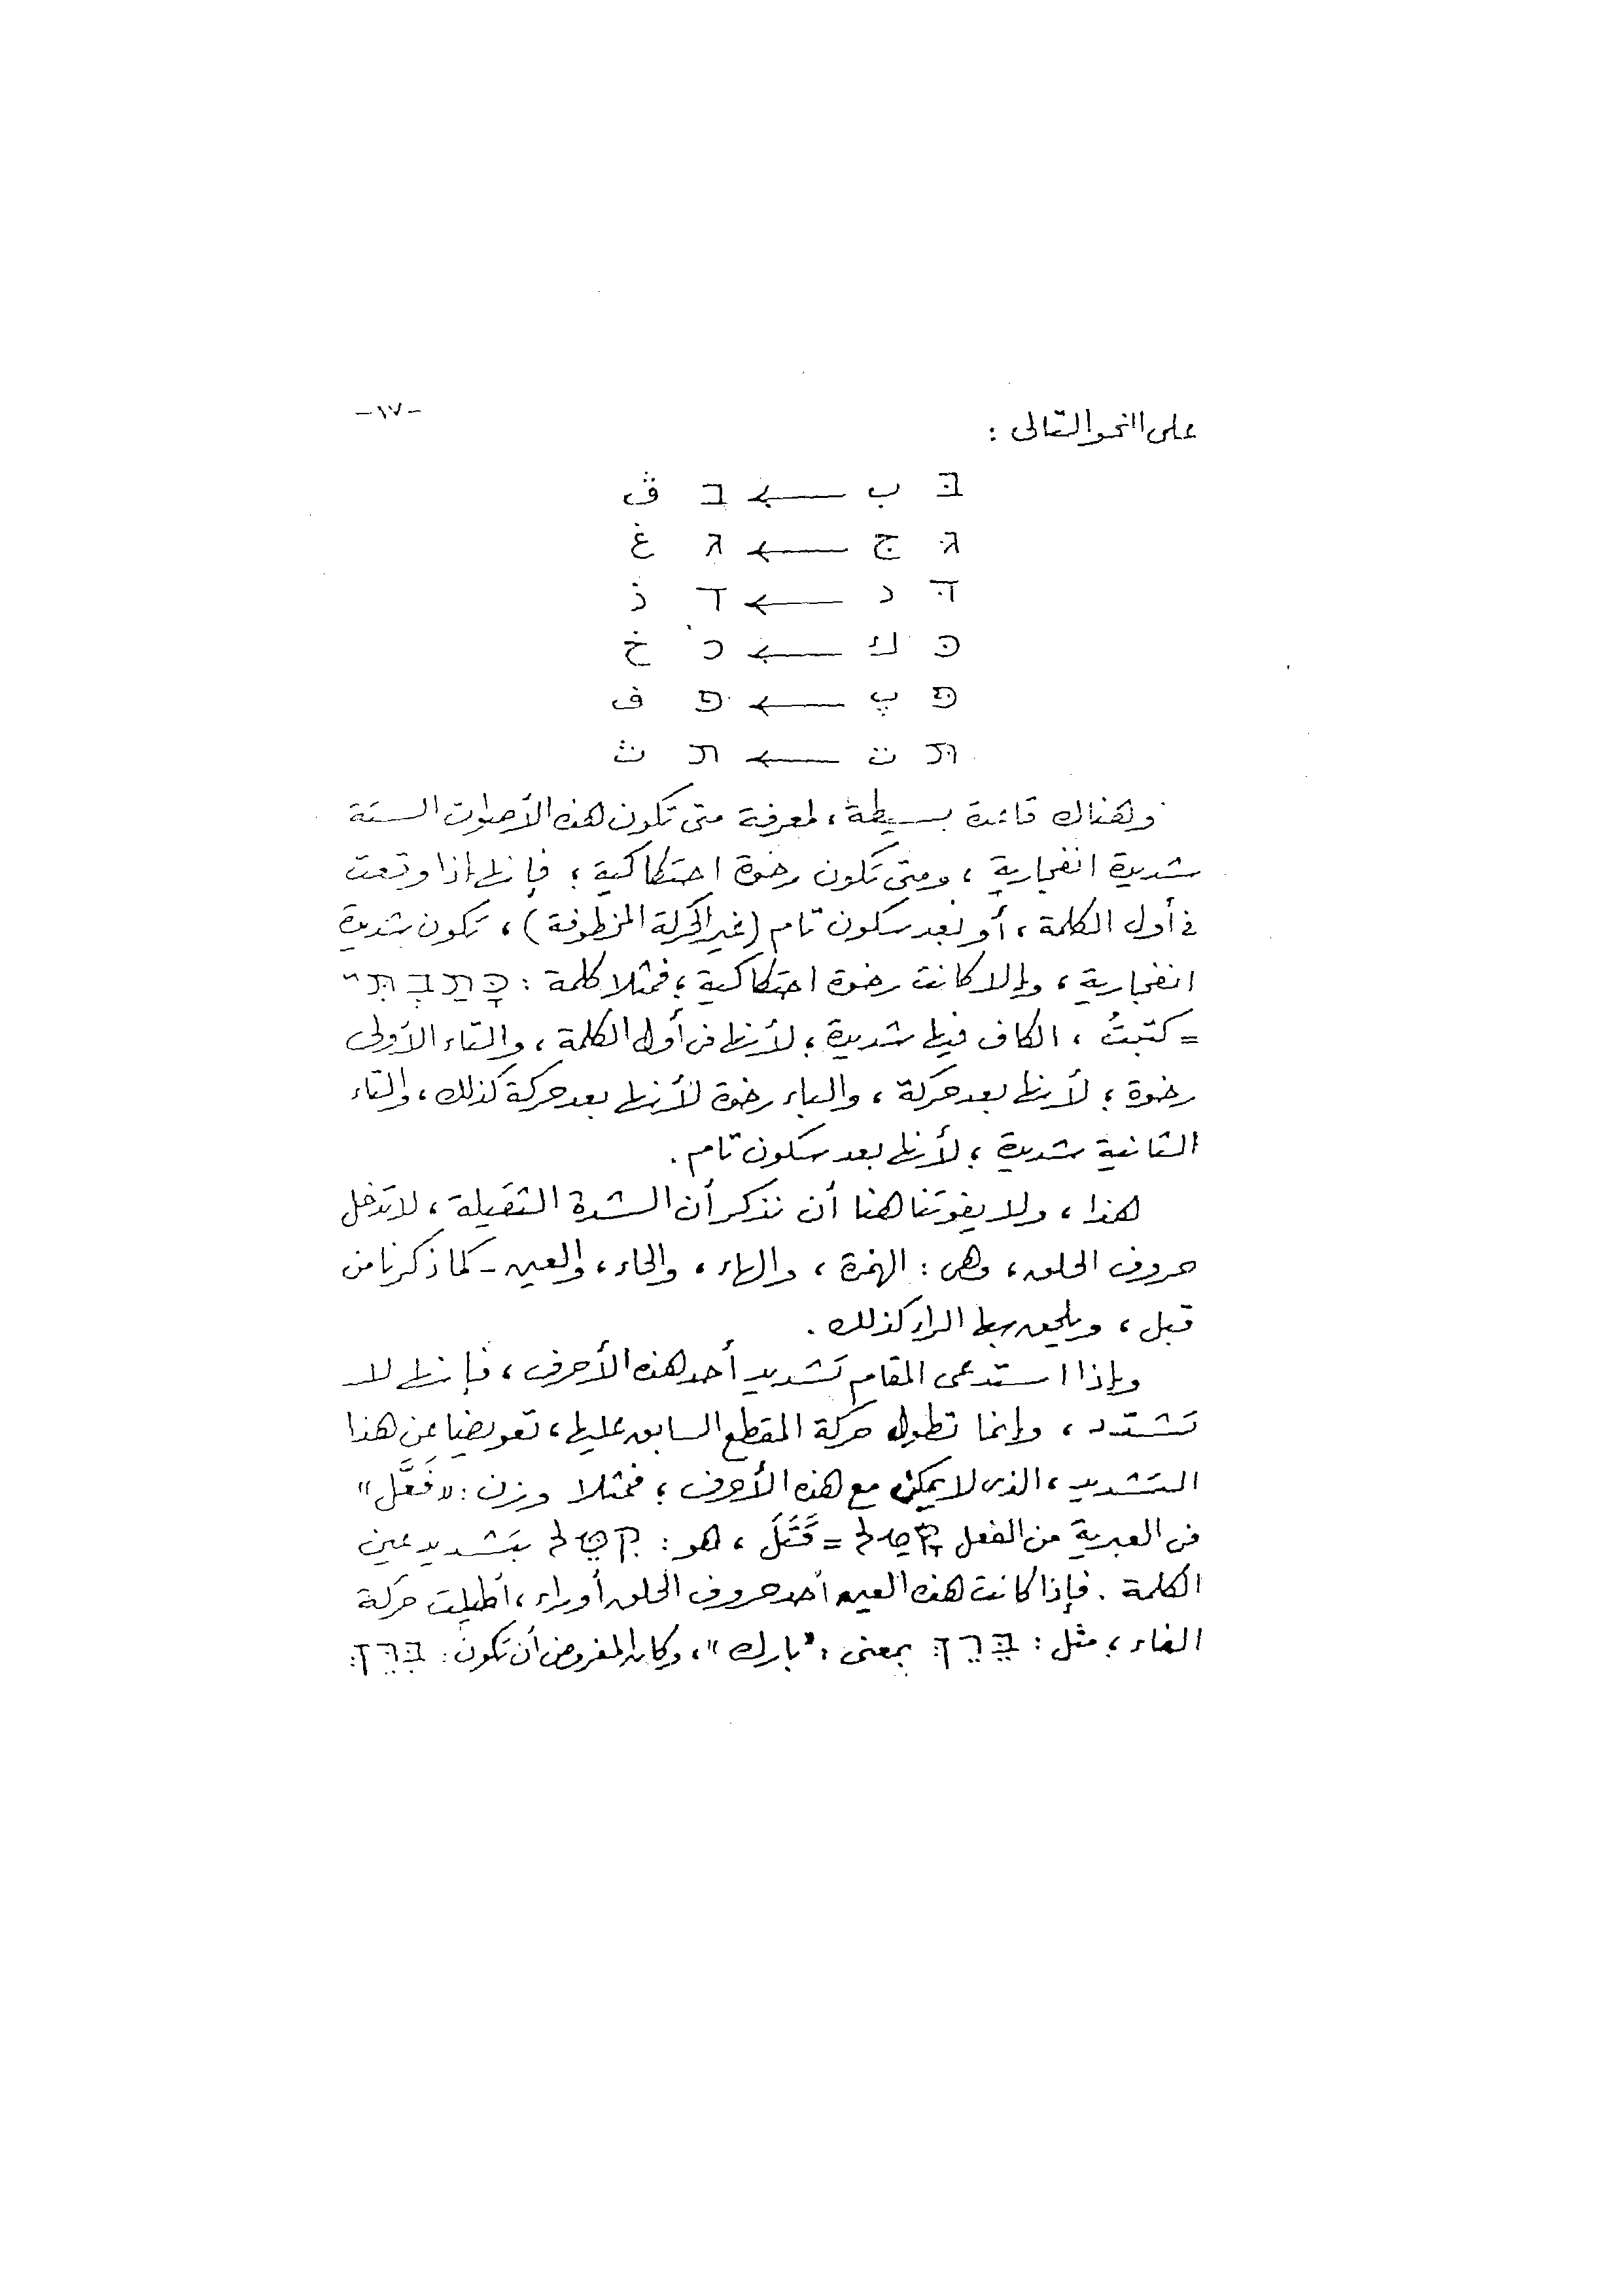 -١٧-
على النحو التالى :
בּ ب ← ב ڤ
גּ ج ← ג غ
דּ د ← ד ذ
כּ ك ← כ خ
פּ پ ← פ ف
תּ ت ← ת ث
وهناك قاعدة بسيطة ، لمعرفة متى تكون هذه الأصوات الستة
شديدة انفجارية ، ومتى تكون رخوة احتكاكية ؛ فإنها إذا وقعت
فى أول الكلمة ، أو بعد سكون تام (غير الحركة المخطوفة) ، تكون شديدة
انفجارية ، وإلا كانت رخوة احتكاكية ؛ فمثلا كلمة : כָּתַבְתִּי
= كتبتُ ، الكاف فيها شديدة ؛ لأنها فى أول الكلمة ، والتاء الأولى
رخوة ؛ لأنها بعد حركة ، والباء رخوة لأنها بعد حركة كذلك ، والتاء
الثانية شديدة ؛ لأنها بعد سكون تام .
هذا ، ولا يفوتنا هنا أن نذكر أن الشدة الثقيلة ، لا تدخل
حروف الحلق ، وهى : الهمزة ، والهاء ، والحاء ، والعين - كما ذكرنا من
قبل ، ويلحق بها الراء كذلك .
وإذا استدعى المقام تشديد أحد هذه الأحرف ، فإنها لا
تشتدد ، وإنما تطول حركة المقطع السابق عليها ، تعويضا عن هذا
التشديد ، الذى لا يمكن مع هذه الأحرف ؛ فمثلا وزن : « فَعَّل »
فى العبرية من الفعل קָטַל = قَتَلَ ، هو : קִטֵּל بتشديد عين
الكلمة . فإذا كانت هذه العين أحد حروف الحلق أو راء ، أطيلت حركة
الفاء ؛ مثل : בֵּרֵךְ بمعنى : " بارك " ، وكان المفروض أن تكون : בִּרֵּךְ